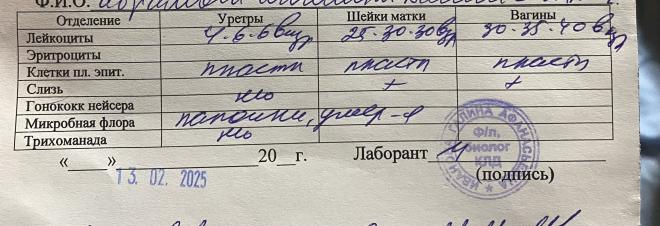 Ф.И.О.
Отделение Уретры Шейки матки Вагины
Лейкоциты 4-6-6 в п/зр 25-30-30 в п/зр 30-35-40 в п/зр
Эритроциты
Клетки пл. эпит. пласты пласты пласты
Слизь + +
Гонококк нейсера н/о
Микробная флора палочки, умер-я
Трихоманада н/о
«___»___ 20__г. Лаборант
13. 02. 2025
(подпись)
ГАЛИНА АФАНАСЬЕВНА
Ф/л,
биолог
КЛД